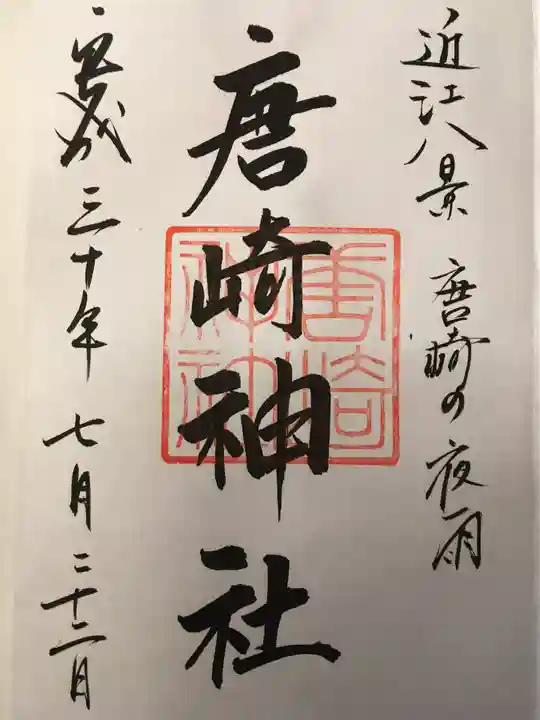 近江八景 唐崎の夜雨
唐崎神社
唐崎神社
平成三十年七月二十二日